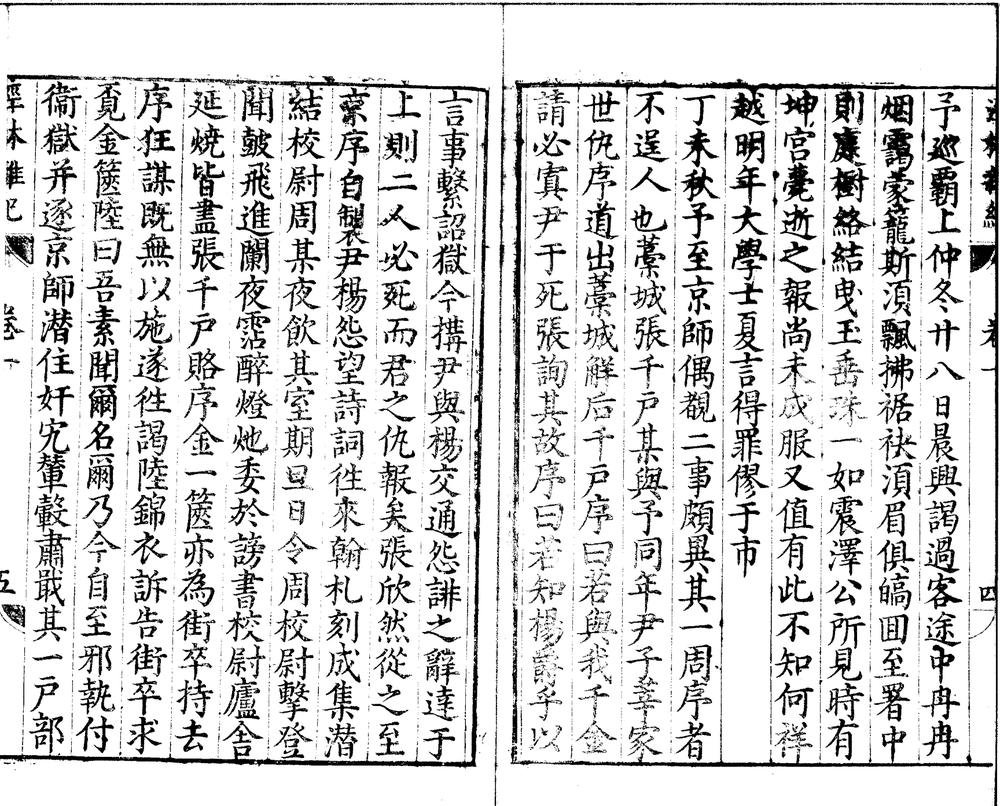 予巡霸上仲冬廿八日晨興謁過客途中冉冉
烟靄蒙籠斯湏飄拂裾袂湏眉俱皜囬至署中
則庭樹絡結曵玉垂珠一如震澤公所見時有
坤宮薨逝之報尚未成服又值有此不知何祥
越明年大學士夏言得罪僇于市
丁未秋予至京師偶覩二事頗異其一周序者
不逞人也藁城張千戸某與予同年尹子莘家
世仇序道出藁城解后千戸序曰若與我千金
請必寘尹于死張詢其故序曰若知楊爵乎以
言事繫詔獄今搆尹與楊交通怨誹之辭達于
上則二人必死而君之仇報矣張欣然從之至
京序自製尹楊怨望詩詞徃來翰札刻成集潜
結校尉周某夜飲其室期旦日令周校尉擊登
聞皷飛進闌夜霑醉燈灺委於謗書校尉廬舍
延燒皆盡張千戸賂序金一篋亦為街卒持去
序狂謀既無以施遂徃謁陸錦衣訴告街卒求
覔金篋陸曰吾素聞爾名爾乃今自至邪執付
衞獄并逐京師潜住奸宄輦轂肅戢其一戸部
卷一
五